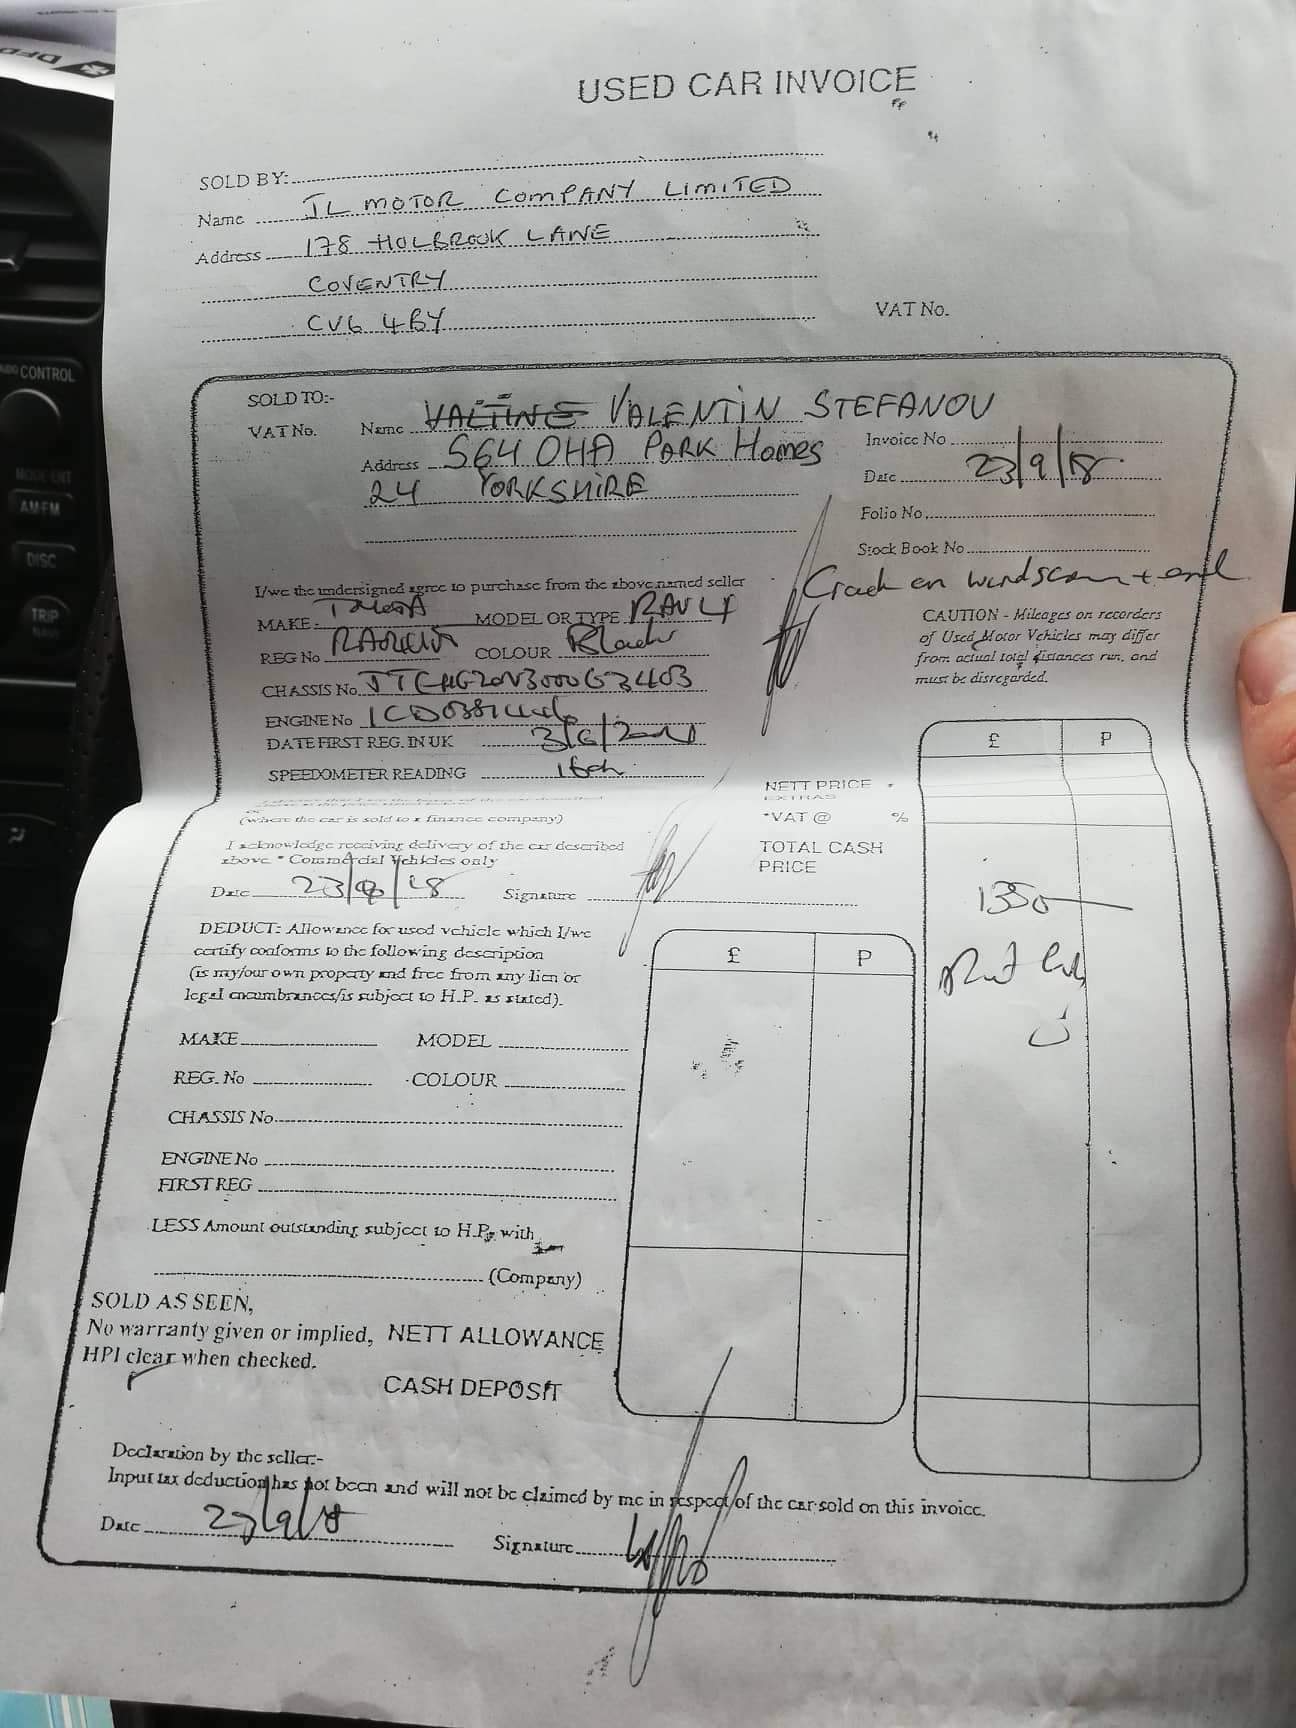 USED CAR INVOICE
SOLD BY:
Name JL MOTOR COMPANY LIMITED
Address 178 HOLBROOK LANE
COVENTRY
CV6 4BY
VAT No.
SOLD TO:-
VAT No.
Name VALENTIN STEFANOV
Address S64 0HA PARK HOMES
24 YORKSHIRE
Invoice No
Date 23/9/18
Folio No
Stock Book No
I/we the undersigned agree to purchase from the above named seller
Crack on windscreen
MAKE MODEL OR TYPE RAV 4
REG No COLOUR Black
CHASSIS No
ENGINE No
DATE FIRST REG. IN UK
SPEEDOMETER READING
CAUTION - Mileages on recorders
of Used Motor Vehicles may differ
from actual total distances run, and
must be disregarded.
£ P
NETT PRICE
EXTRAS
*VAT @ %
TOTAL CASH
PRICE
1350
(where the car is sold to a finance company)
I acknowledge receiving delivery of the car described
above. * Commercial Vehicles only
Date Signature
DEDUCT: Allowance for used vehicle which I/we
certify conforms to the following description
(is my/our own property and free from any lien or
legal encumbrances/is subject to H.P. as stated).
£ P
MAKE MODEL
REG. No COLOUR
CHASSIS No
ENGINE No
FIRST REG
LESS Amount outstanding subject to H.P. with
(Company)
SOLD AS SEEN,
No warranty given or implied, NETT ALLOWANCE
HPI clear when checked.
CASH DEPOSIT
Declaration by the seller:-
Input tax deduction has not been and will not be claimed by me in respect of the car sold on this invoice.
Date Signature
CONTROL
AM·FM
DISC
TRIP